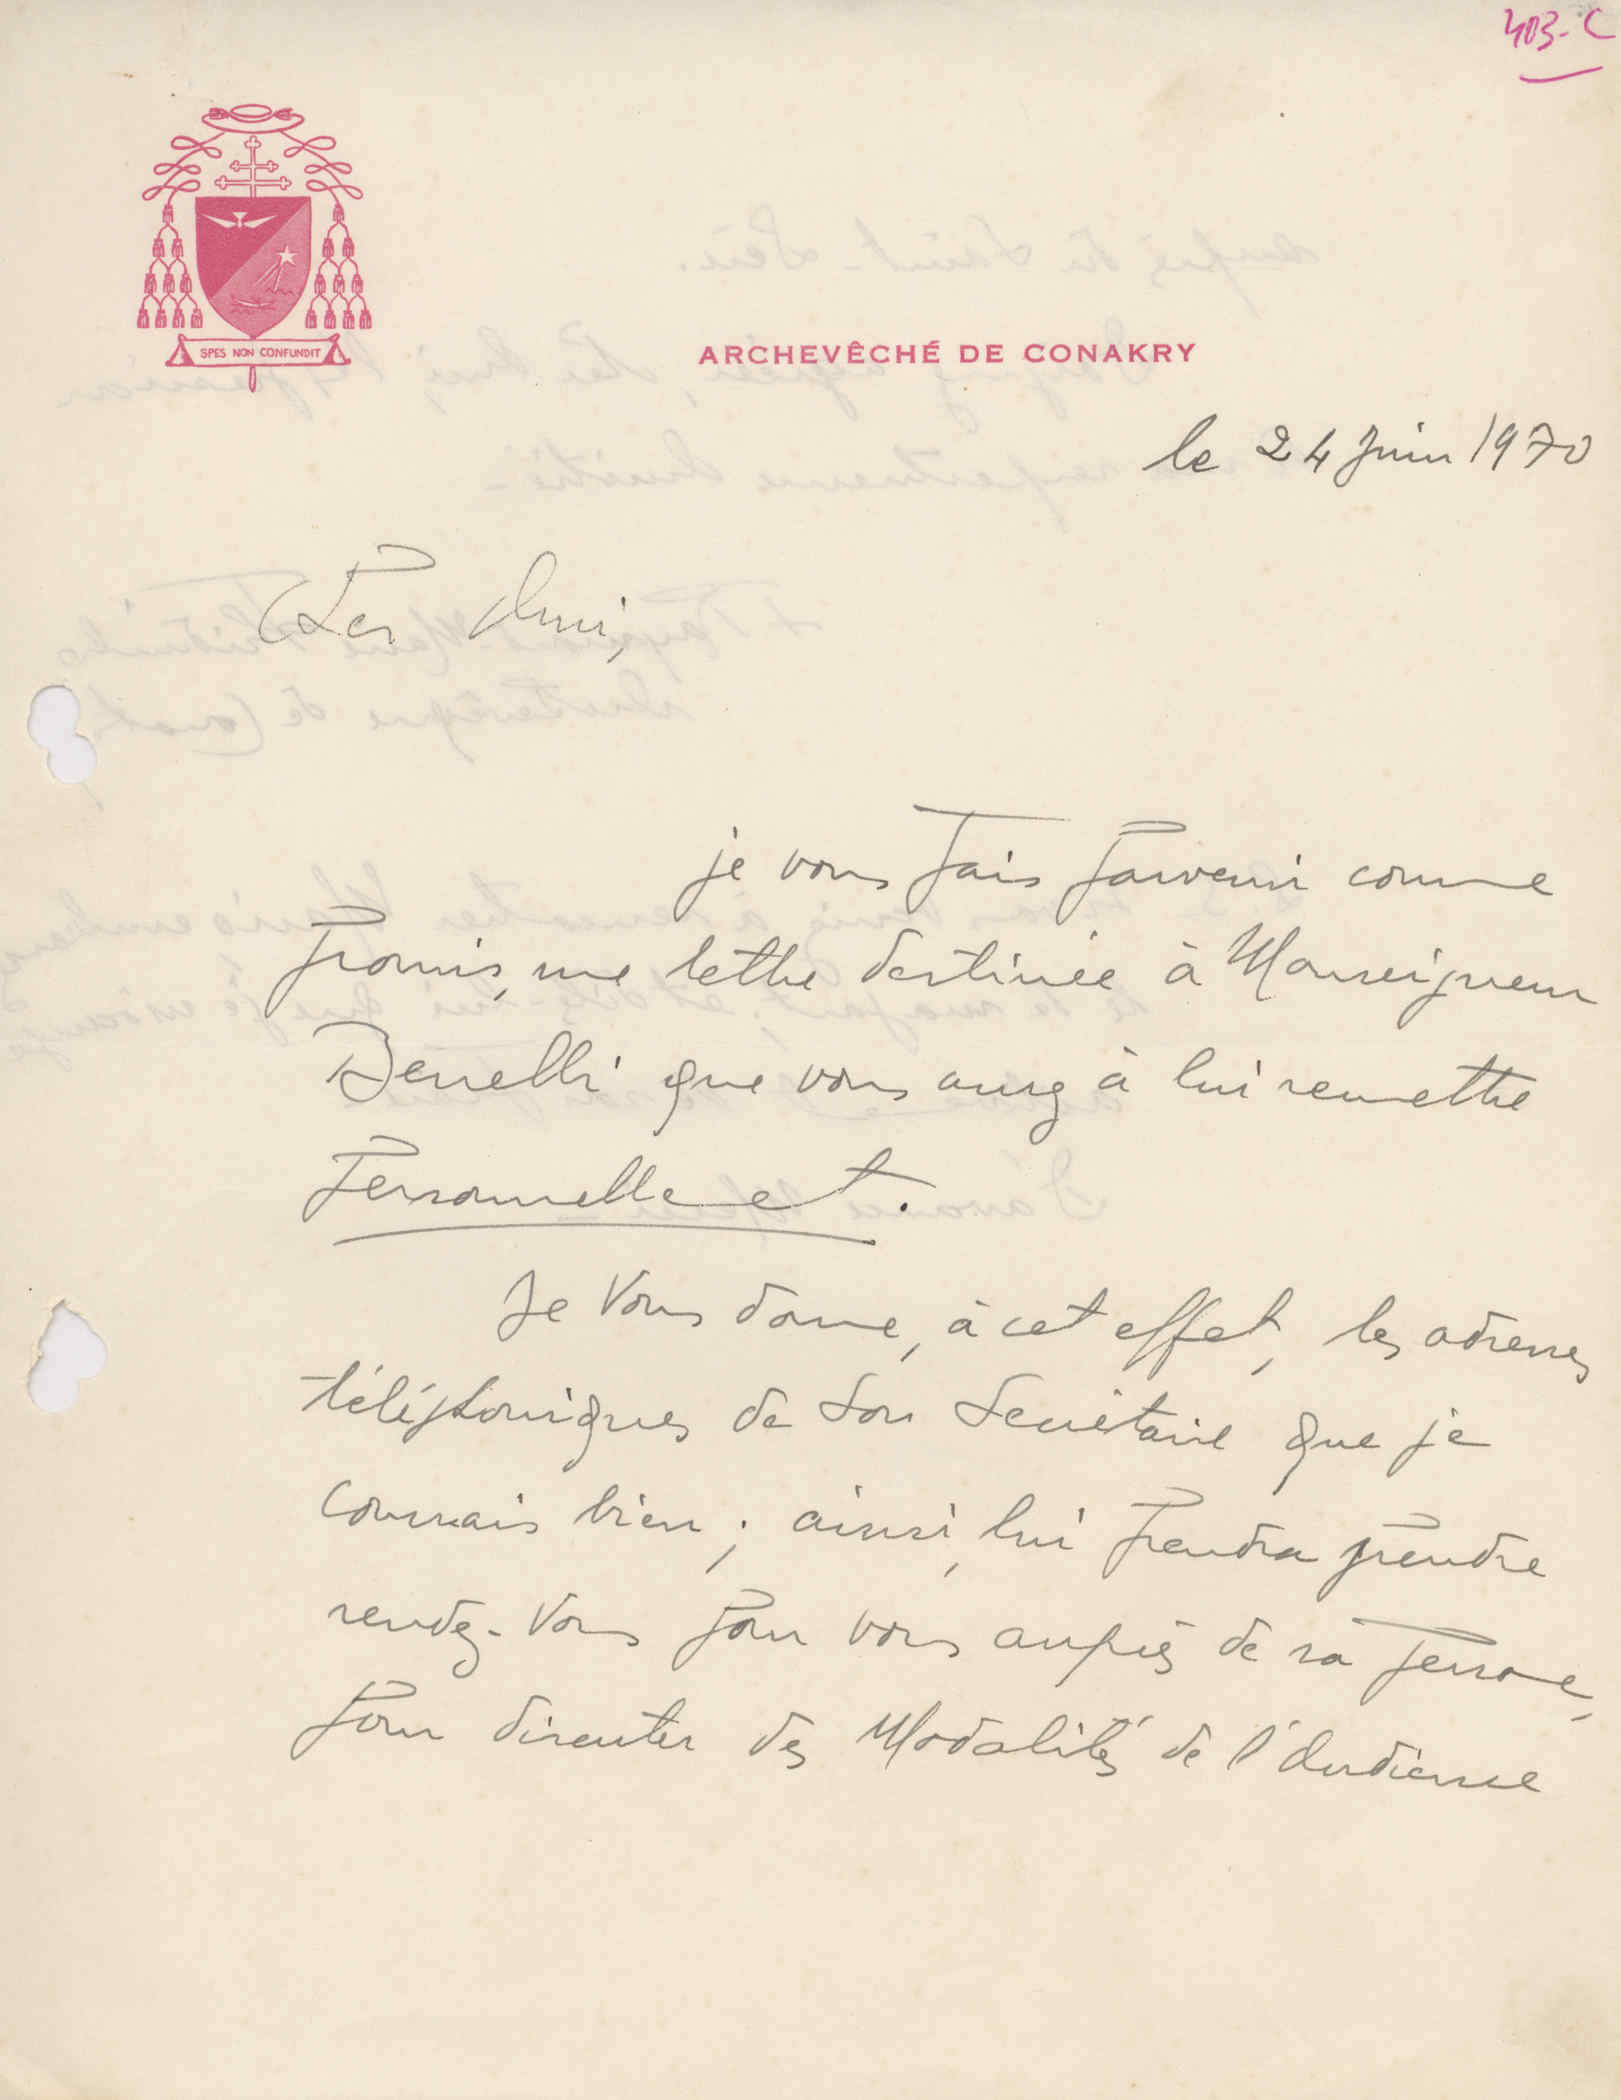 403-C
SPES NON CONFUNDIT
ARCHEVÊCHÉ DE CONAKRY
le 24 Juin 1970
Cher Ami,
je vous fais parvenir comme
promis, une lettre destinée à Monseigneur
Benelli que vous aurez à lui remettre
Personnellement.
Je vous donne, à cet effet, les adresses
téléphoniques de son Secrétaire que je
connais bien ; ainsi, lui prendra prendre
rendez-vous pour vous auprès de sa personne,
pour discuter des Modalités de l'Audience